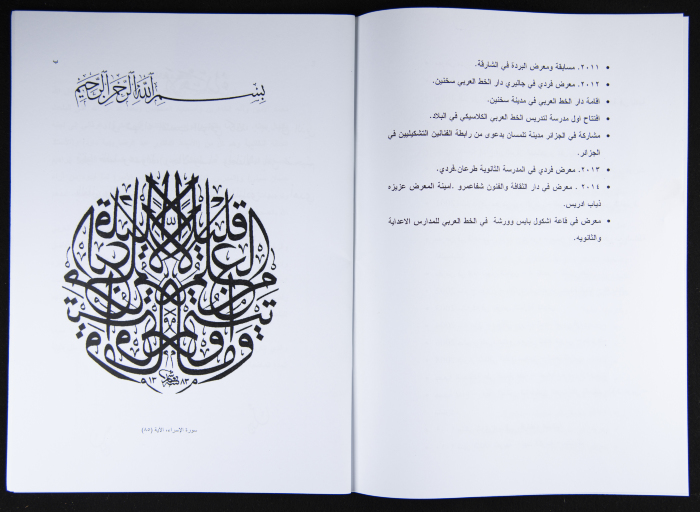 ٢٠١١. مسابقة ومعرض البردة في الشارقة.
٢٠١٢. معرض فردي في جاليري دار الخط العربي سخنين.
اقامة دار الخط العربي في مدينة سخنين.
افتتاح اول مدرسة لتدريس الخط العربي الكلاسيكي في البلاد.
مشاركة في الجزائر مدينة تلمسان بدعوى من رابطة الفنانين التشكيليين في
الجزائر.
٢٠١٣. معرض فردي في المدرسة الثانوية طرعان.فردي.
٢٠١٤ . معرض في دار الثقافة والفنون شفاعمرو .امينة المعرض عزيزه
ذياب ادريس.
معرض في قاعة اشكول بايس وورشة في الخط العربي للمدارس الاعدادية
والثانويه.
بسم الله الرحمن الرحيم
وما أوتيتم من العلم إلا قليلا
١٣ ٨٣
سورة الإسراء، الآية (٨٥)